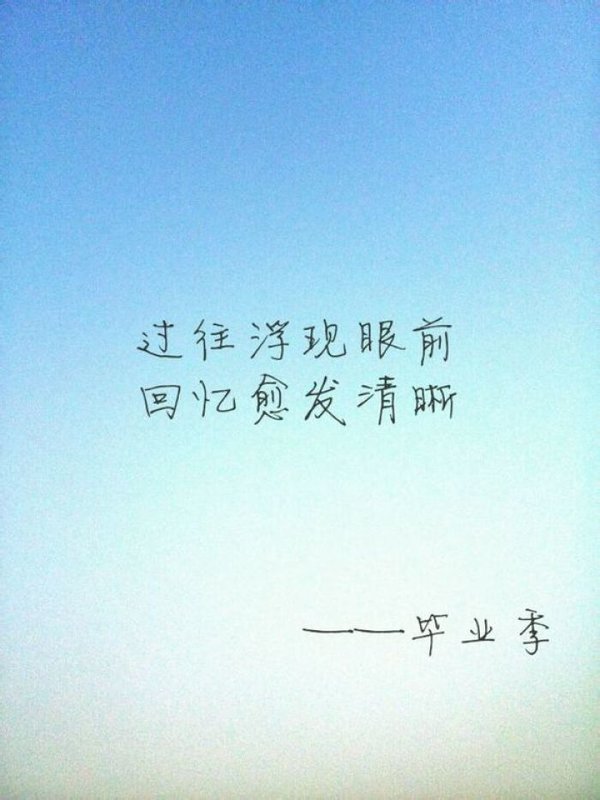 过往浮现眼前
回忆愈发清晰
——毕业季